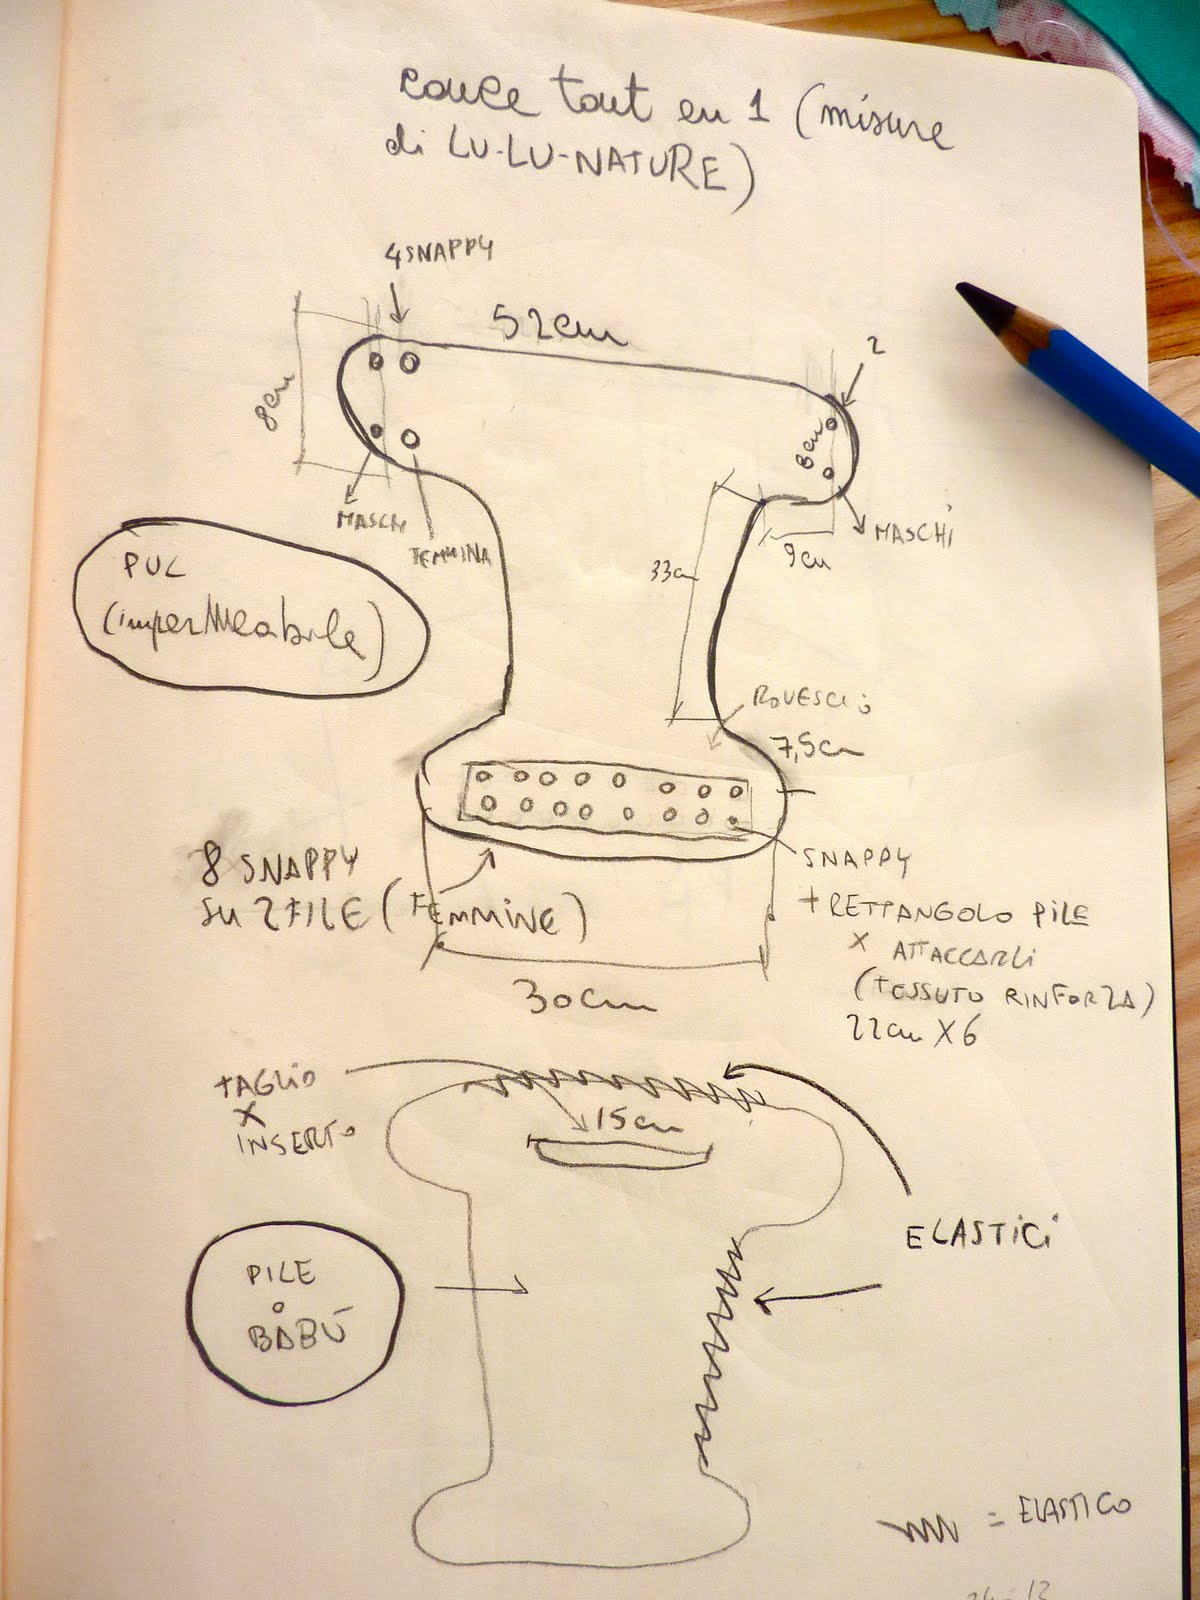 couce tout en 1 (misure
di LU-LU-NATURE)
4 SNAPPY
52cm
2
8cm
8cm
MASCHI
FEMMINA
MASCHi
9cm
33cm
PUL
(impermeabile)
ROVESCiO
7,5cm
8 SNAPPY
SU 2 FILE (FEMMINE)
SNAPPY
+ RETTANGOLO PILE
X ATTACCARLi
(TESSUTO RINFORZA)
22cm X 6
30cm
TAGLiO
X
INSERTO
15cm
ELASTiCi
PILE
o
BABÙ
= ELASTICO